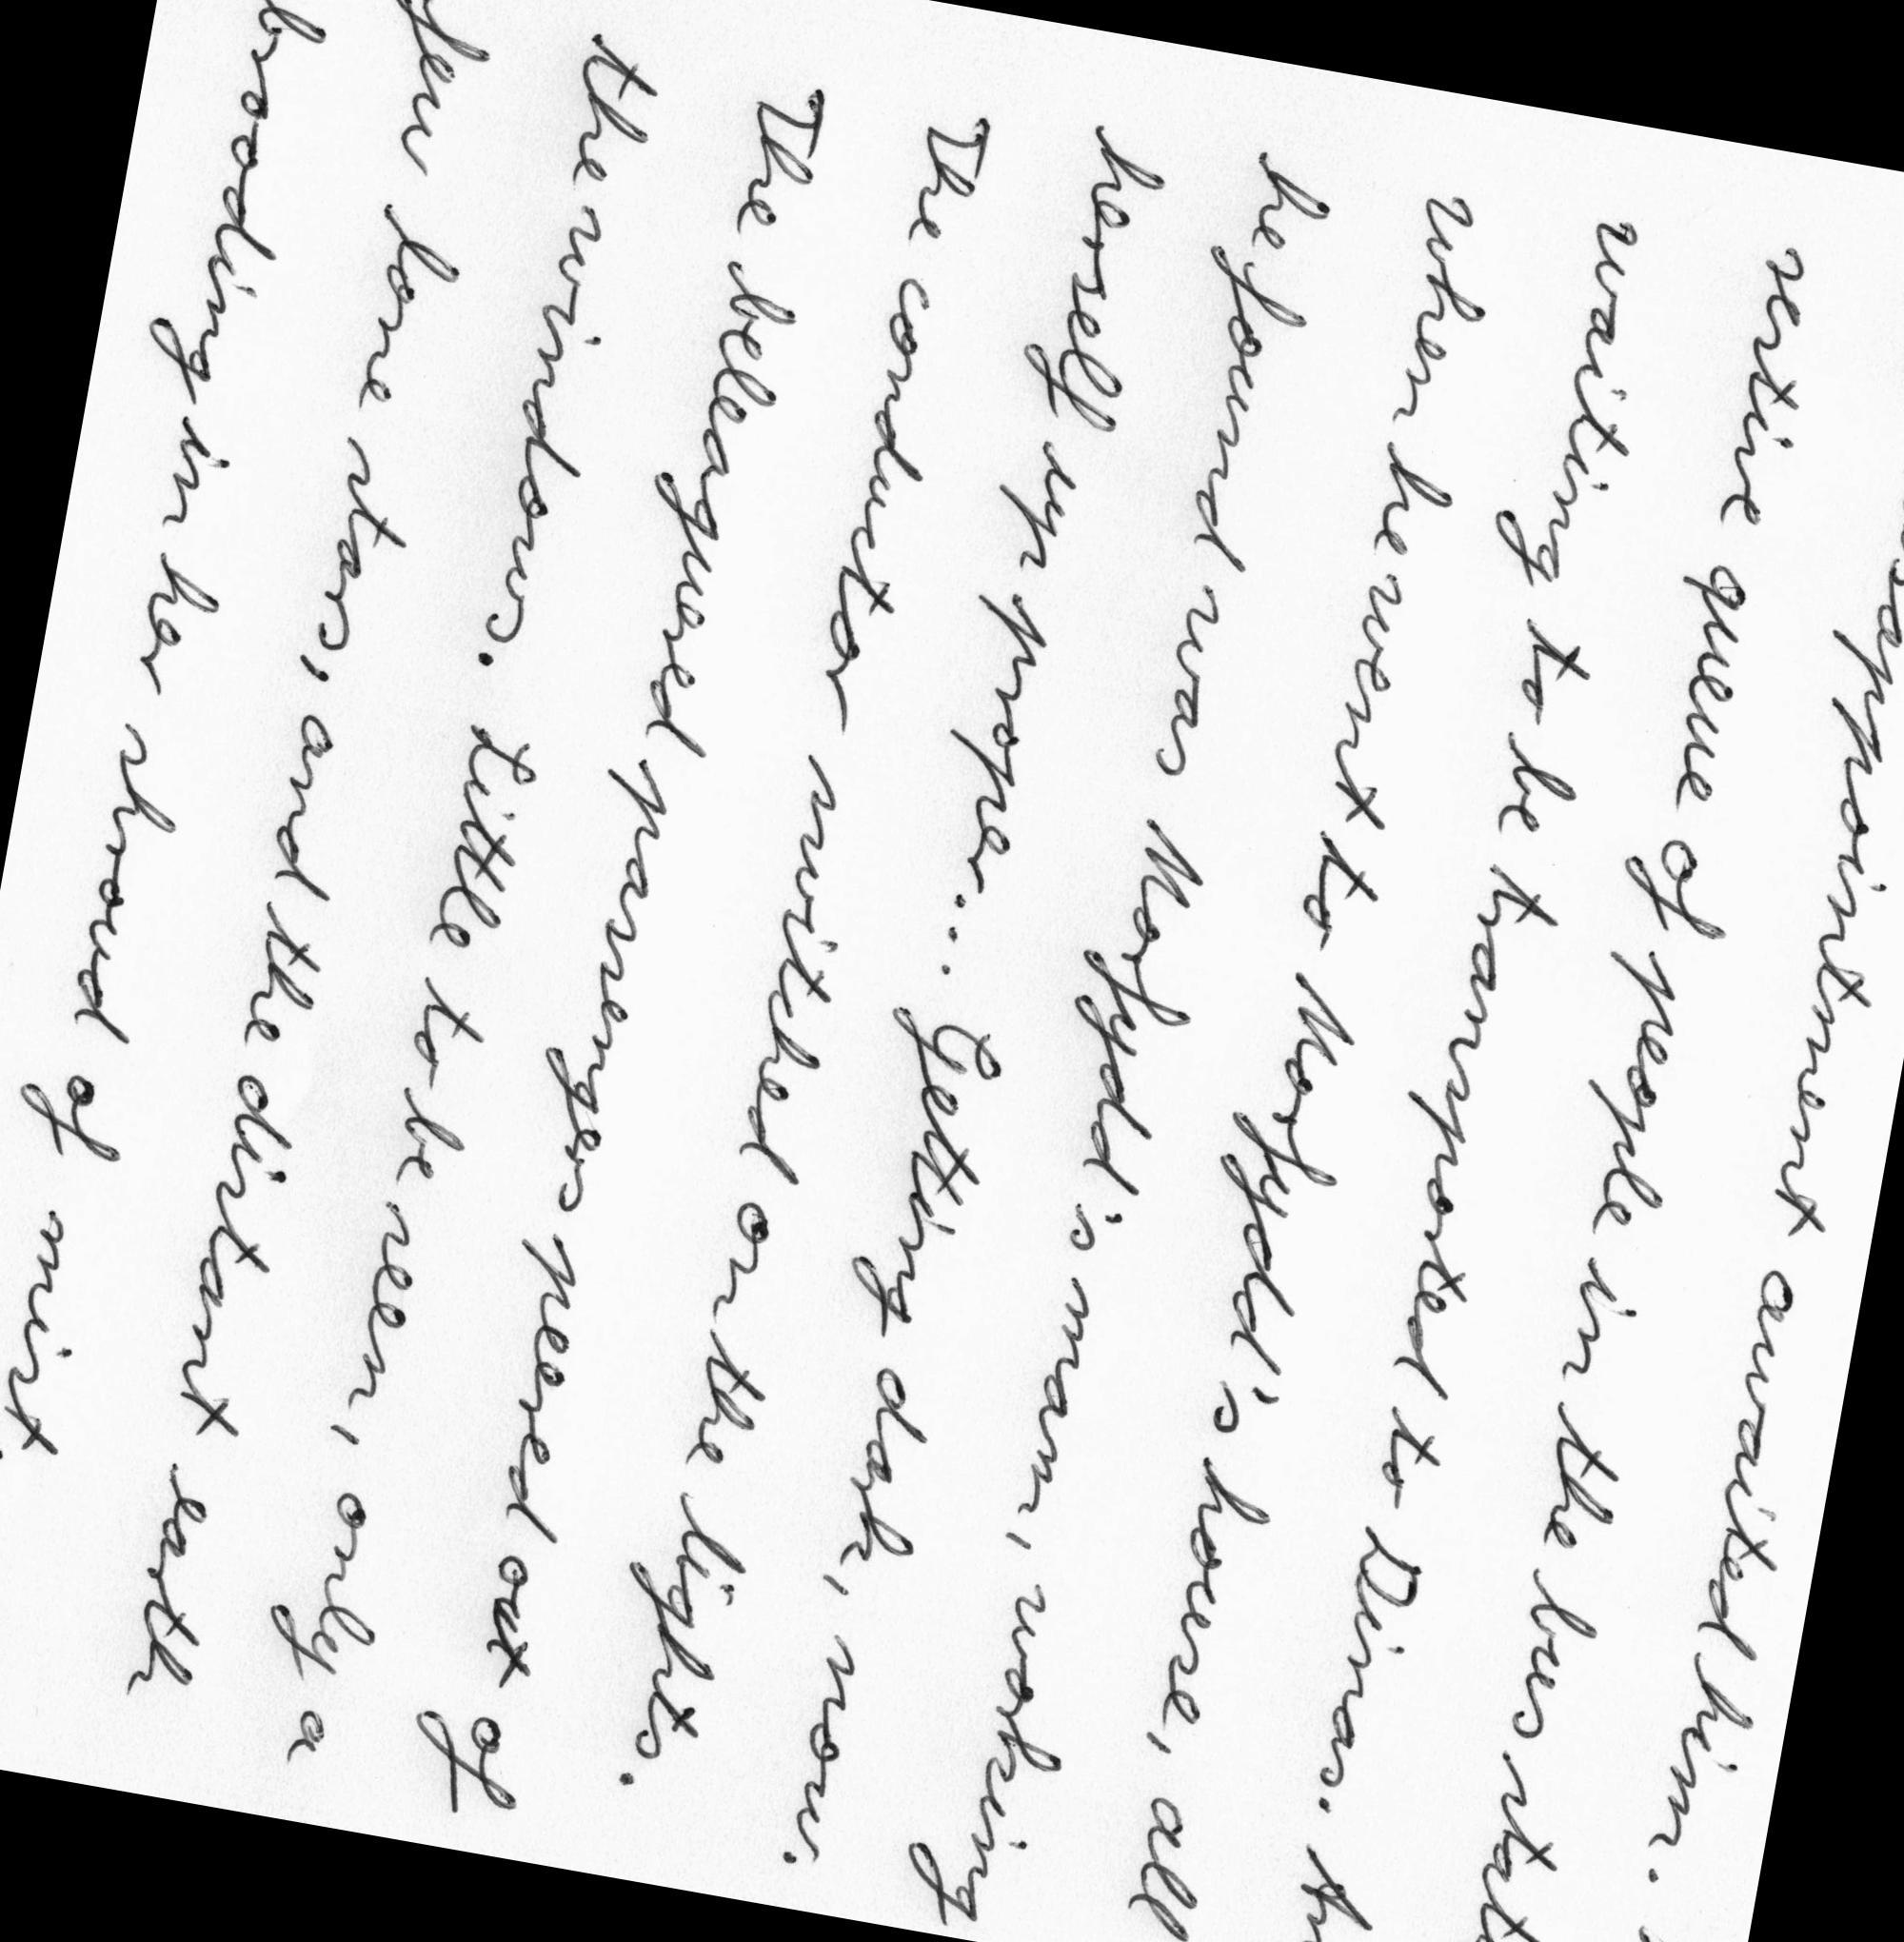 appointment awaited him.
restive queue of people in the bus stat
waiting to be transported to Dinas. Th
when he went to Morfydd's house, all
he found was Morfydd's mam, working
herself up proper... Getting dark, now.
The conductor switched on the lights.
The beleaguered passengers peered out of
the windows. Little to be seen, only a
few lone stars, and the distant earth
brooding in her shroud of mist.